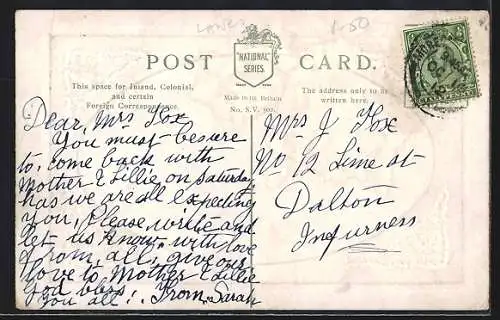 1-50
POST CARD.
"NATIONAL"
SERIES
This space for Inland, Colonial,
and certain
Foreign Correspondence.
Made in Gt. Britain
No. S.V.
The address only to be
written here.
Dear Mrs Fox
You must be sure
to, come back with
Mother & Lillie on Saturday
has we are all expecting
you, Please write and
let us know, with love
from, all, give our
love to Mother & Lillie
god bless
you all! From Sarah
Mrs J Fox
No 12 Lime st
Dalton
In furness